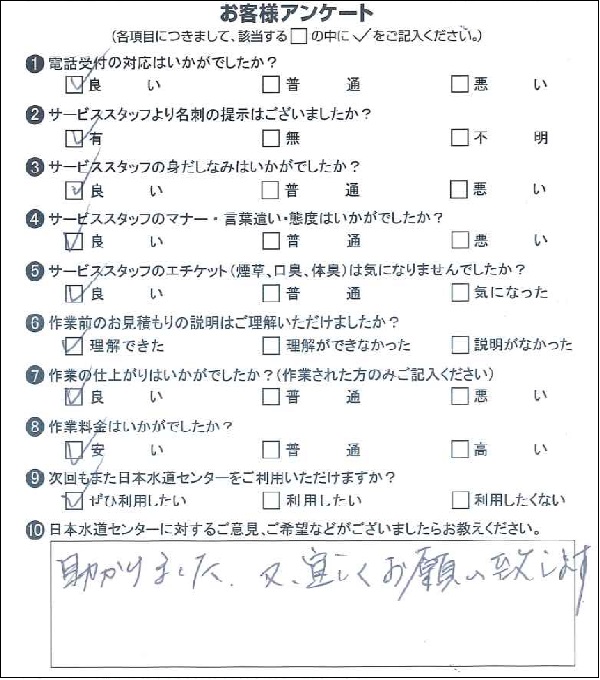 お客様アンケート
(各項目につきまして、該当する□の中に✓をご記入ください。)
❶電話受付の対応はいかがでしたか?
☑良い □普通 □悪い
❷サービススタッフより名刺の提示はございましたか?
☑有 □無 □不明
❸サービススタッフの身だしなみはいかがでしたか?
☑良い □普通 □悪い
❹サービススタッフのマナー・言葉遣い・態度はいかがでしたか?
☑良い □普通 □悪い
❺サービススタッフのエチケット(煙草、口臭、体臭)は気になりませんでしたか?
☑良い □普通 □気になった
❻作業前のお見積もりの説明はご理解いただけましたか?
☑理解できた □理解ができなかった □説明がなかった
❼作業の仕上がりはいかがでしたか?(作業された方のみご記入ください)
☑良い □普通 □悪い
❽作業料金はいかがでしたか?
☑安い □普通 □高い
❾次回もまた日本水道センターをご利用いただけますか?
☑ぜひ利用したい □利用したい □利用したくない
❿日本水道センターに対するご意見、ご希望などがございましたらお教えください。
助かりました、又、宜しくお願い致します